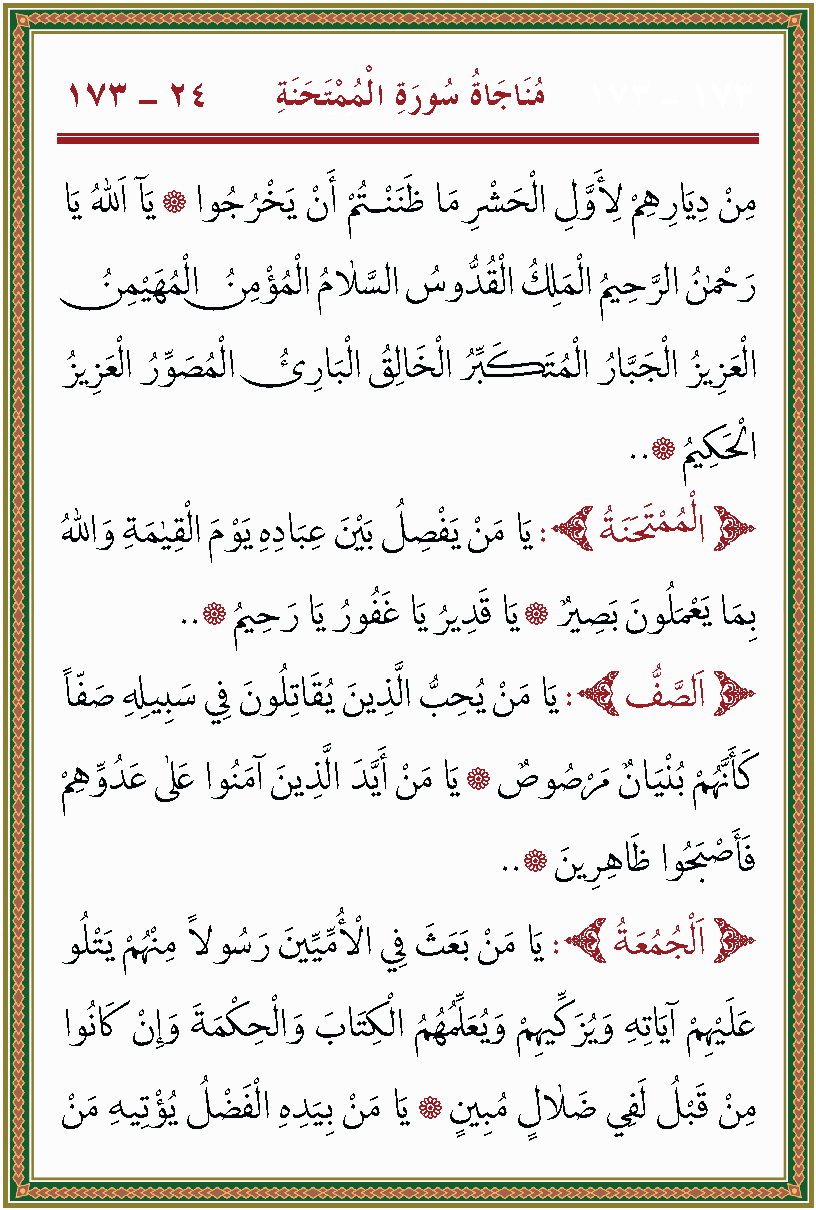 مُنَاجَاةُ سُورَةِ الْمُمْتَحَنَةِ ٢٤ – ١٧٣
مِنْ دِيَارِهِمْ لِأَوَّلِ الْحَشْرِ مَا ظَنَنْتُمْ أَنْ يَخْرُجُوا ۞ يَآ اَللهُ يَا
رَحْمٰنُ الرَّحِيمُ الْمَلِكُ الْقُدُّوسُ السَّلَامُ الْمُؤْمِنُ الْمُهَيْمِنُ
الْعَزِيزُ الْجَبَّارُ الْمُتَكَبِّرُ الْخَالِقُ الْبَارِئُ الْمُصَوِّرُ الْعَزِيزُ
الْحَكِيمُ ۞..
﴿ الْمُمْتَحَنَةُ ﴾: يَا مَنْ يَفْصِلُ بَيْنَ عِبَادِهِ يَوْمَ الْقِيٰمَةِ وَاللهُ
بِمَا يَعْمَلُونَ بَصِيرٌ ۞ يَا قَدِيرُ يَا غَفُورُ يَا رَحِيمُ ۞..
﴿ اَلصَّفُّ ﴾: يَا مَنْ يُحِبُّ الَّذِينَ يُقَاتِلُونَ فِي سَبِيلِهِ صَفّاً
كَأَنَّهُمْ بُنْيَانٌ مَرْصُوصٌ ۞ يَا مَنْ أَيَّدَ الَّذِينَ آمَنُوا عَلٰى عَدُوِّهِمْ
فَأَصْبَحُوا ظَاهِرِينَ ۞..
﴿ اَلْجُمُعَةُ ﴾: يَا مَنْ بَعَثَ فِي الْأُمِّيِّينَ رَسُولاً مِنْهُمْ يَتْلُو
عَلَيْهِمْ آيَاتِهِ وَيُزَكِّيهِمْ وَيُعَلِّمُهُمُ الْكِتَابَ وَالْحِكْمَةَ وَإِنْ كَانُوا
مِنْ قَبْلُ لَفِي ضَلَالٍ مُبِينٍ ۞ يَا مَنْ بِيَدِهِ الْفَضْلُ يُؤْتِيهِ مَنْ